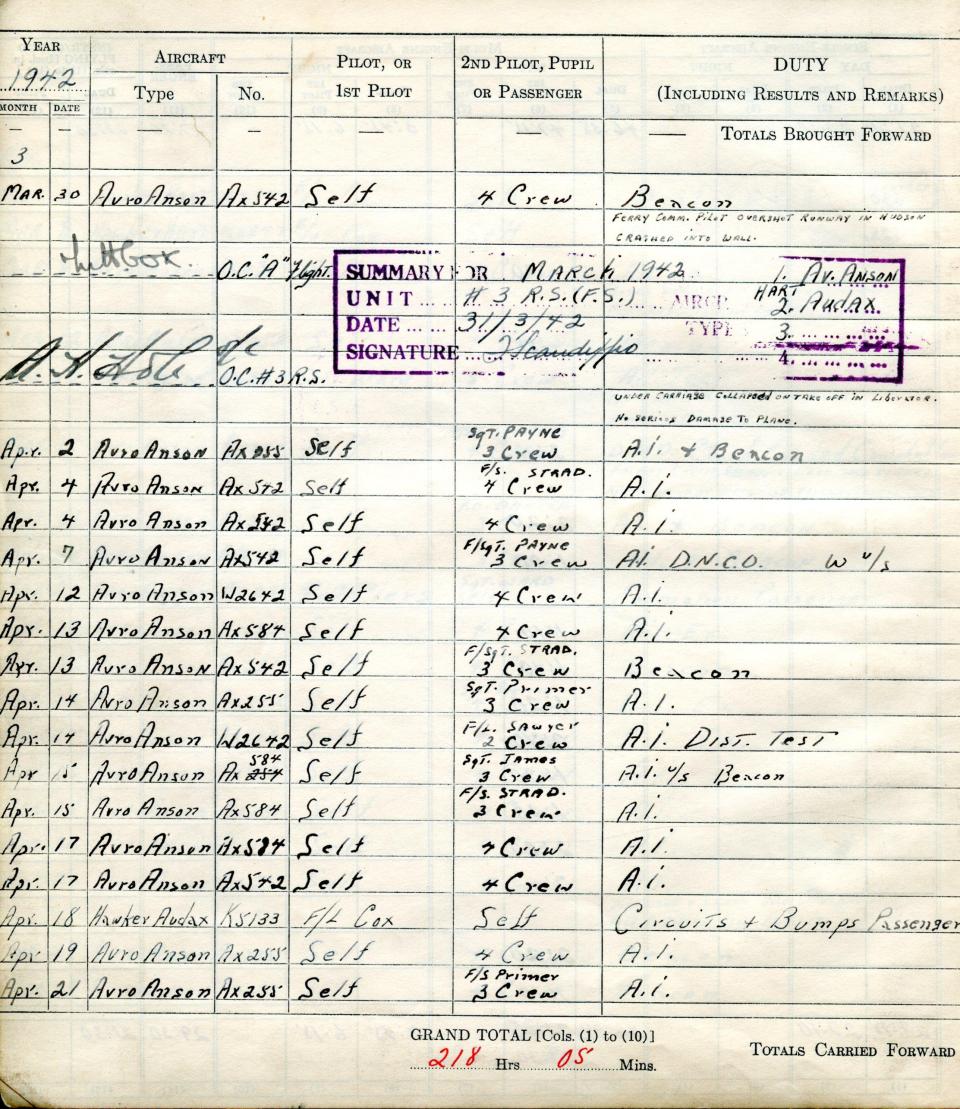 YEAR AIRCRAFT PILOT, OR 2ND PILOT, PUPIL DUTY
1942 Type No. 1ST PILOT OR PASSENGER (INCLUDING RESULTS AND REMARKS)
MONTH DATE
— — — — — — TOTALS BROUGHT FORWARD
3
MAR. 30 Avro Anson Ax542 Self 4 Crew Beacon
FERRY COMM. PILOT OVERSHOT RUNWAY IN HUDSON
CRASHED INTO WALL.
O.C. "A" Flight.
SUMMARY FOR MARCH 1942 1. AV. ANSON
UNIT # 3 R.S. (F.S.) AIRCR HART 2. Audax
DATE 31/3/42 TYPE 3.
SIGNATURE 4.
O.C. #3 R.S.
UNDER CARRIAGE COLLAPSED ON TAKE OFF IN LIBERATOR.
NO SERIOUS DAMAGE TO PLANE.
SGT. PAYNE
Apr. 2 Avro Anson Ax255 Self 3 Crew A.I. + Beacon
F/S. STRAD.
Apr. 4 Avro Anson Ax542 Self 4 Crew A.I.
Apr. 4 Avro Anson Ax542 Self 4 Crew A.I.
F/SGT. PAYNE
Apr. 7 Avro Anson Ax542 Self 3 Crew A.I. D.N.C.O. W u/s
Apr. 12 Avro Anson W2642 Self 4 Crew A.I.
Apr. 13 Avro Anson Ax584 Self 4 Crew A.I.
F/SGT. STRAD.
Apr. 13 Avro Anson Ax542 Self 3 Crew Beacon
SGT. Primer
Apr. 14 Avro Anson Ax255 Self 3 Crew A.I.
F/L. SAWYER
Apr. 14 Avro Anson W2642 Self 2 Crew A.I. DIST. TEST
584 SGT. JAMES
Apr 15 Avro Anson Ax 254 Self 3 Crew A.I. u/s Beacon
F/S. STRAD.
Apr. 15 Avro Anson Ax584 Self 3 Crew A.I.
Apr. 17 Avro Anson Ax584 Self 4 Crew A.I.
Apr. 17 Avro Anson Ax542 Self 4 Crew A.I.
Apr. 18 Hawker Audax K5133 F/L Cox Self Circuits + Bumps Passenger
Apr 19 Avro Anson Ax255 Self 4 Crew A.I.
F/S Primer
Apr. 21 Avro Anson Ax255 Self 3 Crew A.I.
GRAND TOTAL [Cols. (1) to (10)]
218 Hrs 05 Mins. TOTALS CARRIED FORWARD